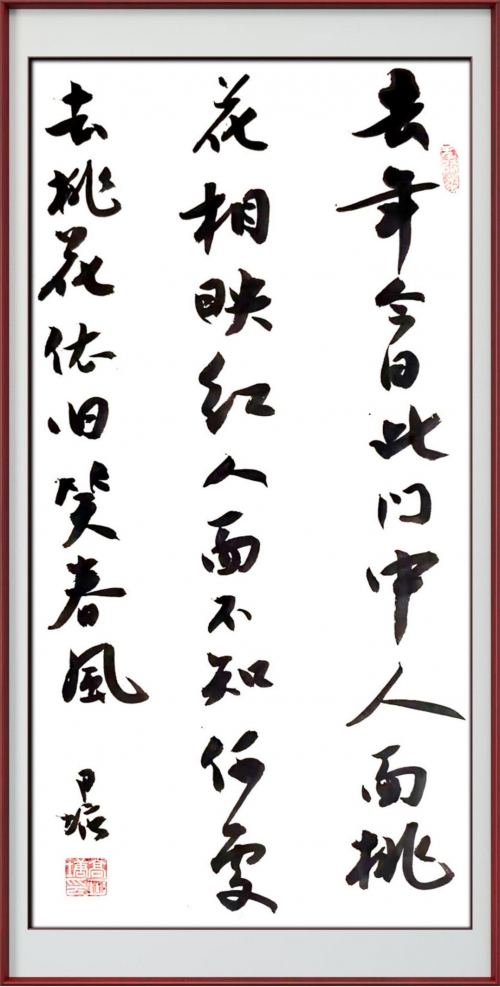 去年今日此门中人面桃
花相映红人面不知何處
去桃花依旧笑春風